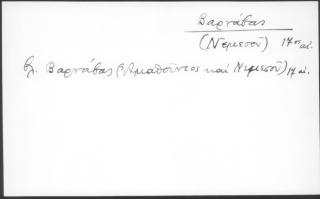 Βαρνάβας
(Νεμεσοῦ) 17ος αἰ.
βλ. Βαρνάβας (Ἀμαθοῦντος καί Νεμεσοῦ) 17 αἰ.